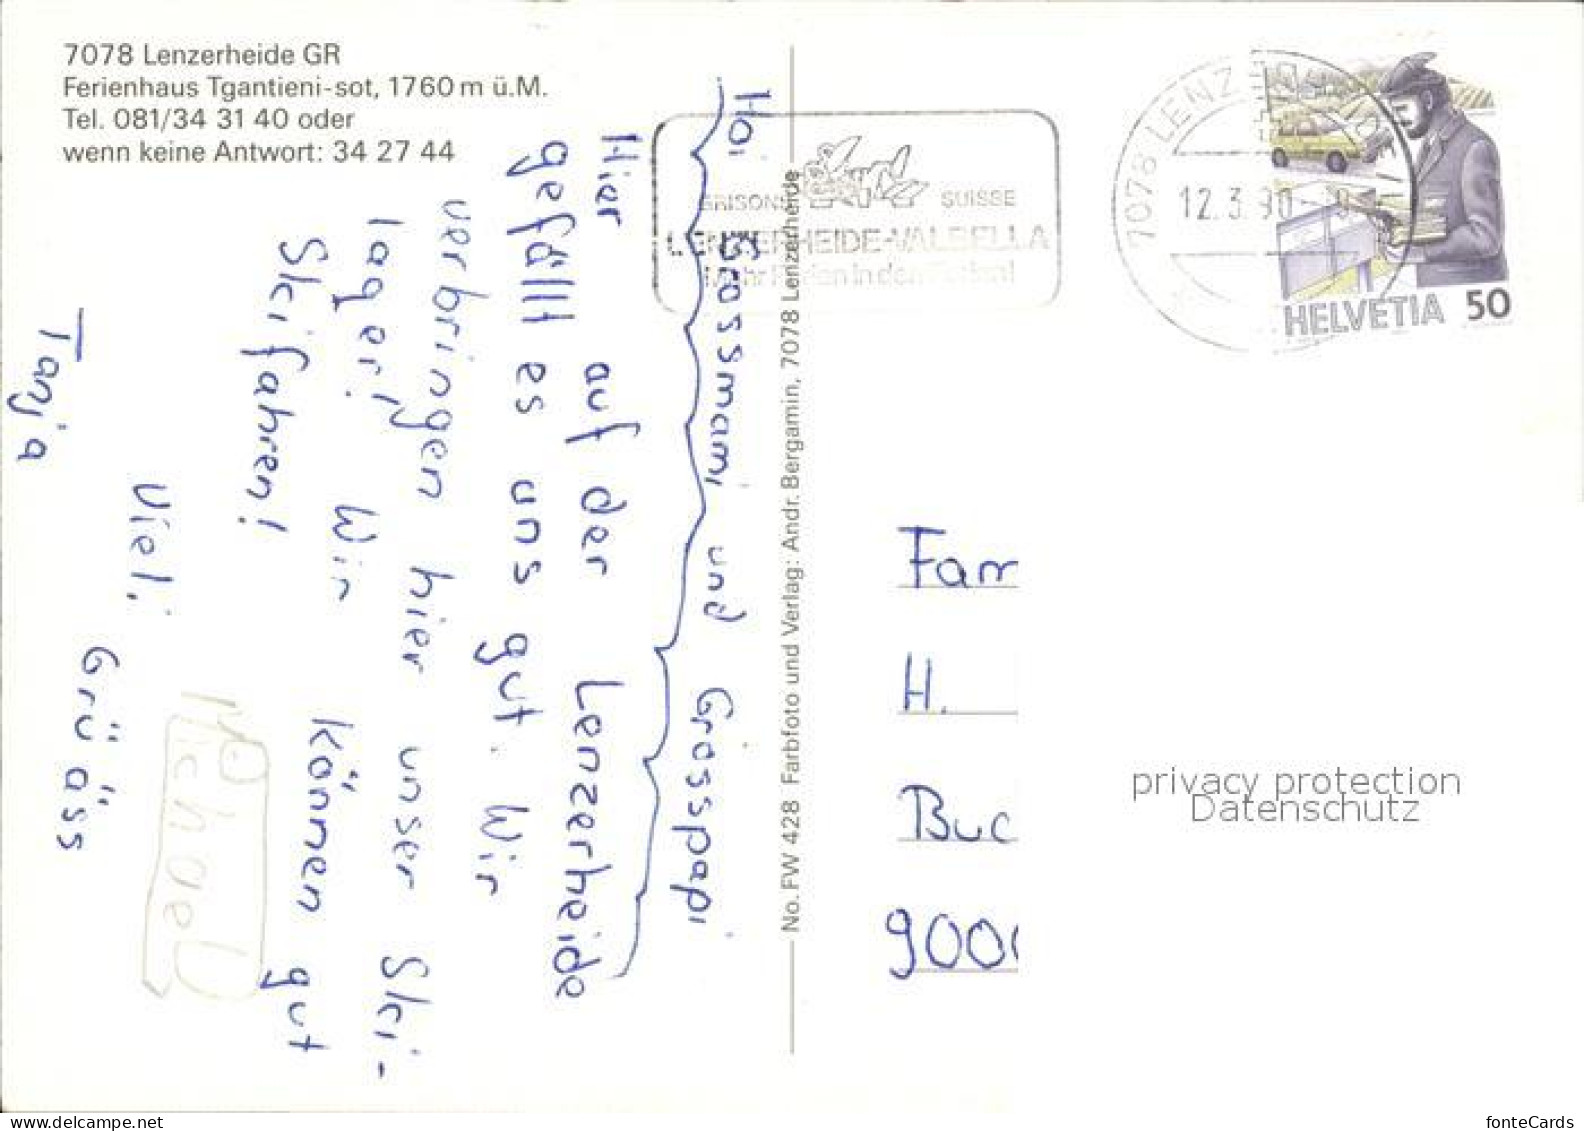 7078 Lenzerheide GR
Ferienhaus Tgantieni-sot, 1760 m ü.M.
Tel. 081/34 31 40 oder
wenn keine Antwort: 34 27 44
Hoi Grossmami und Grosspapi
Hier auf der Lenzerheide
gefällt es uns gut. Wir
verbringen hier unser Ski-
lager! Wir können gut
Skifahren!
Viel. Grüäss
Tanja
Michael
No. FW 428 Farbfoto und Verlag: Andr. Bergamin, 7078 Lenzerheide
GRISONS SUISSE
LENZERHEIDE-VALBELLA
Mehr Ferien in den Ferien!
7078 LENZERHEIDE
12.3.90
HELVETIA 50
Fam
H.
Buc
900
privacy protection
Datenschutz
fonteCards